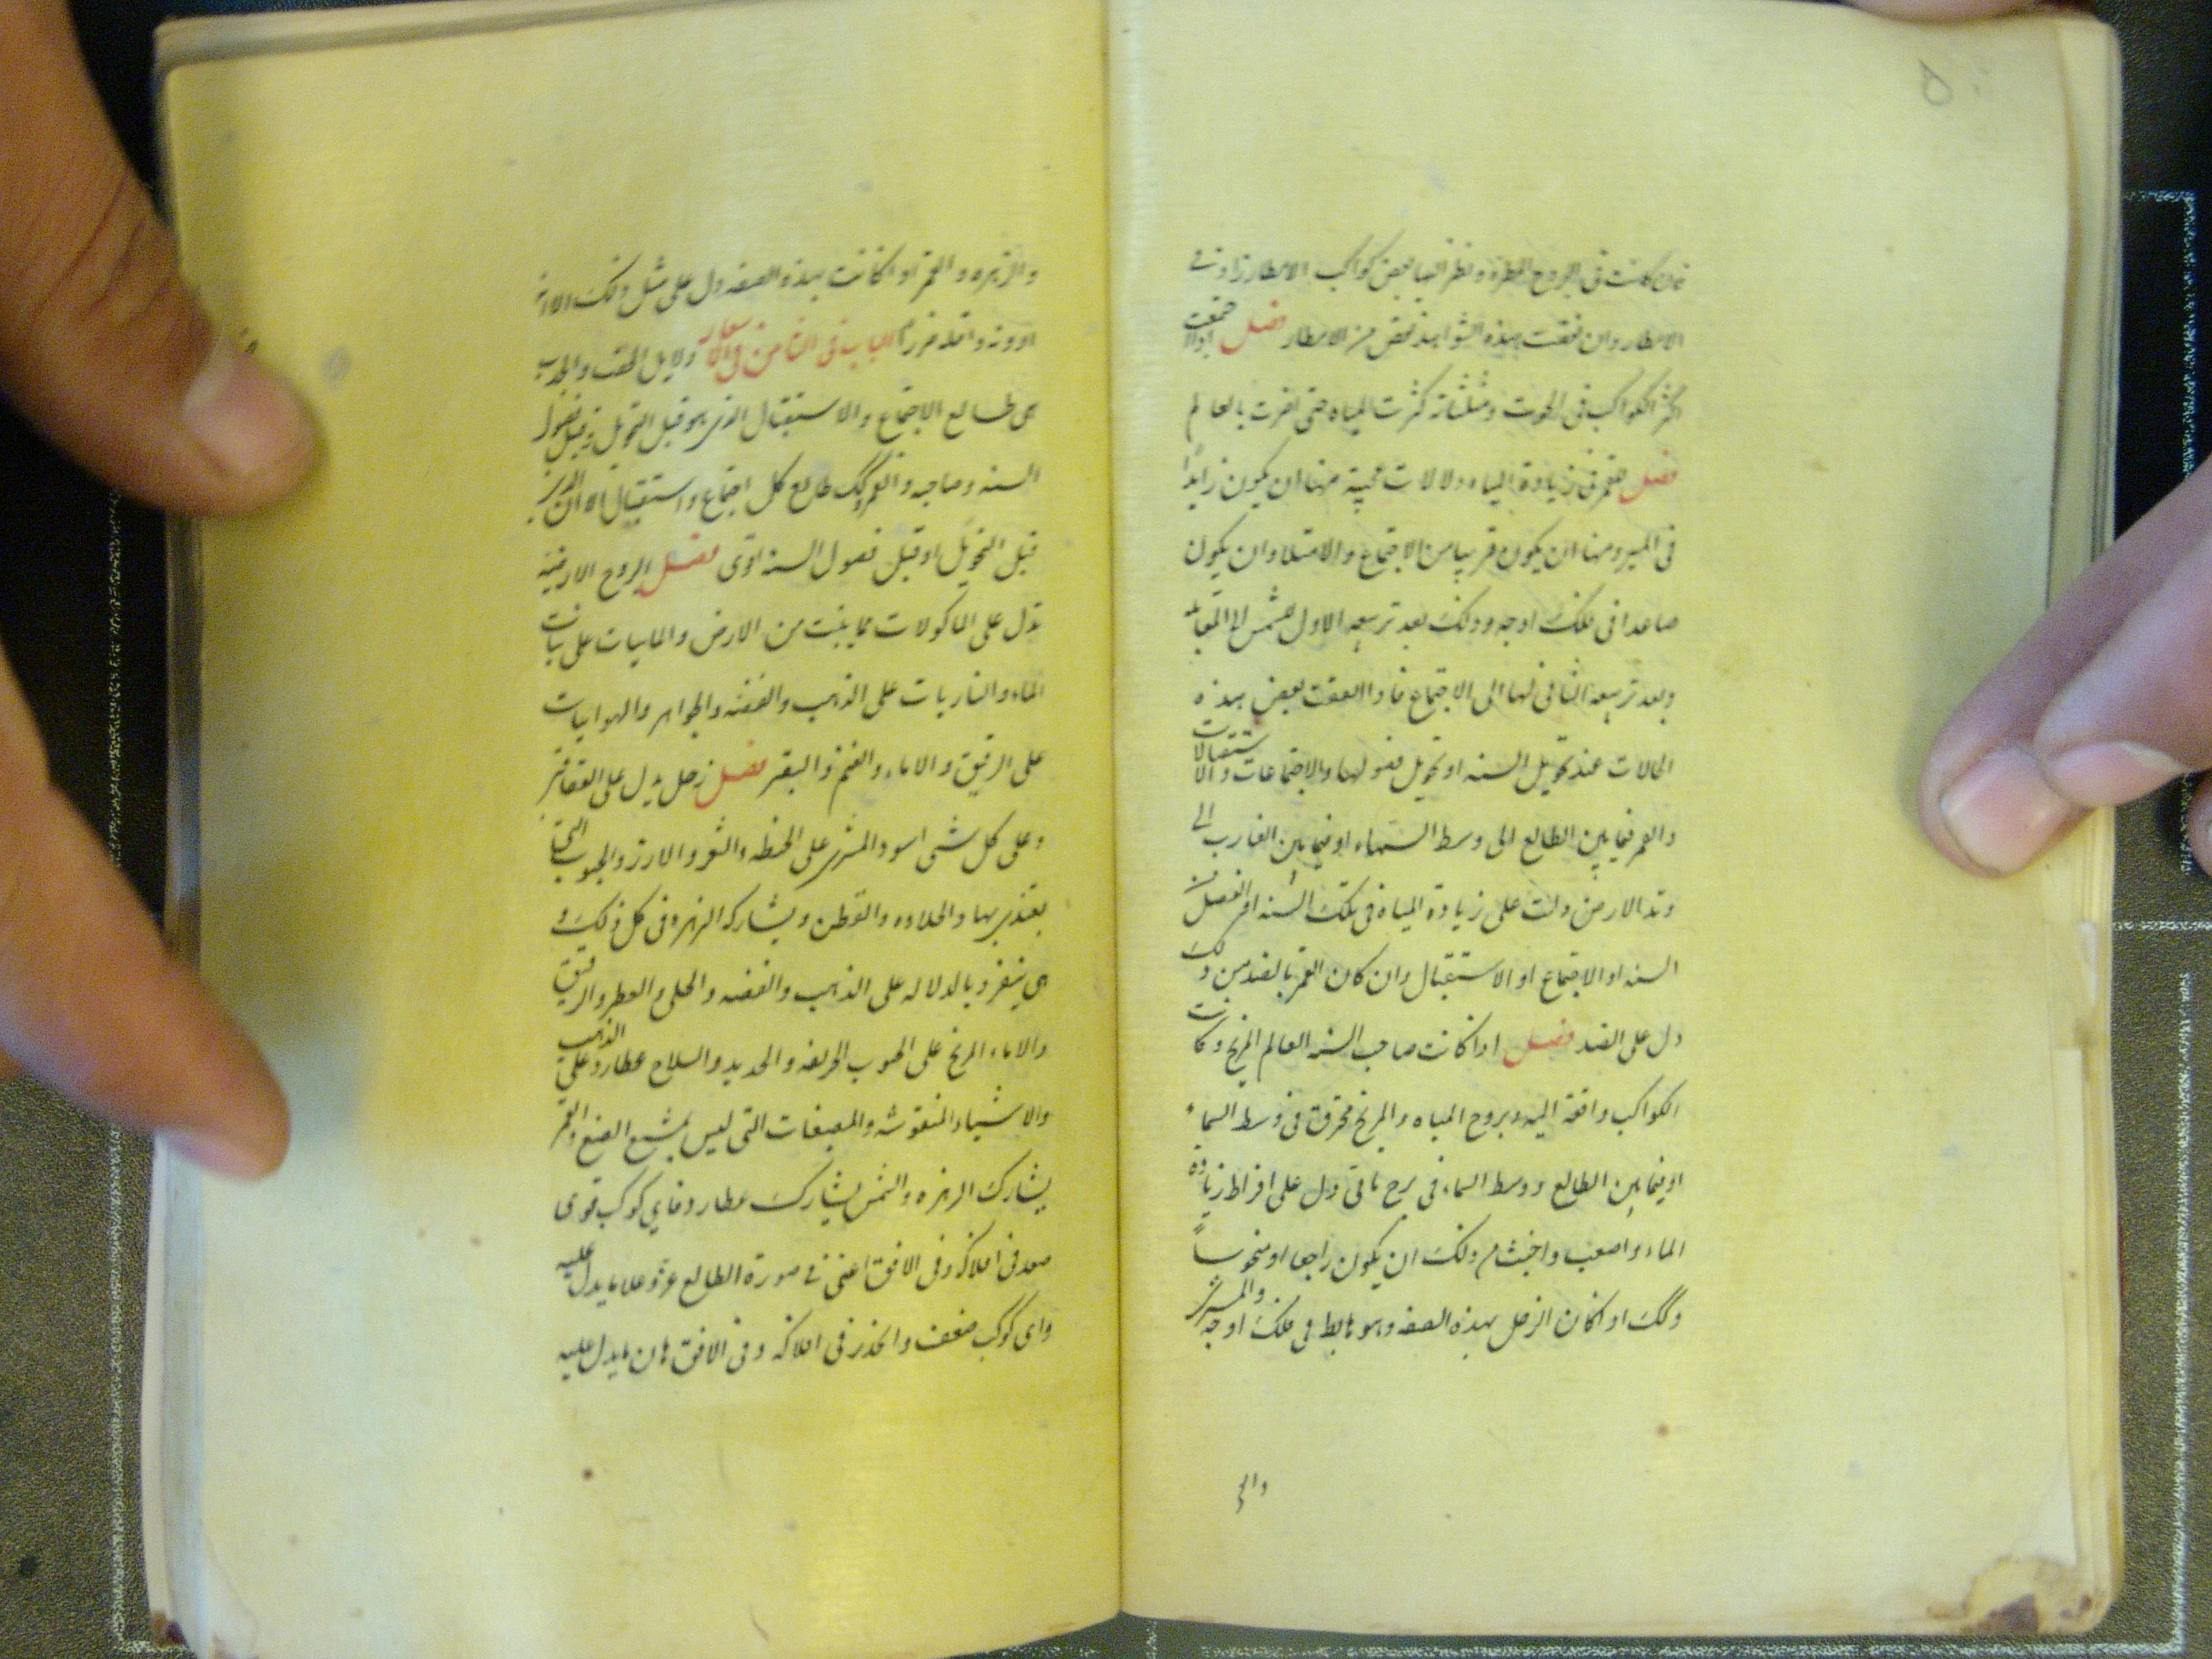 فان كانت فى البروج الممطرة ونظر اليها بعض كواكب الامطار زاد فى
الامطار وان نقصت هذه الشواهد نقص من الامطار فصل اذا اجتمعت
اكثر الكواكب فى الحوت ومثلثاته كثرت المياه حتى تضرت بالعالم
فصل للقمر فى زيادة المياه دلالات عجيبة منها ان يكون زايدا
فى المسير ومنها ان يكون قريبا من الاجتماع والامتلا وان يكون
صاعدا فى فلك اوجه وذلك بعد تربيعه الاول للشمس الى المقابلة
وبعد تربيعه الثانى لها الى الاجتماع فاذا اتفقت بعض هذه
الحالات عند تحويل السنه او تحويل فصولها والاجتماعات والاستقبالات
والقمر فيما بين الطالع الى وسط السماء او فيما بين الغارب الى
وتد الارض دلت على زيادة المياه فى تلك السنه او الفصل من
السنه او الاجتماع او الاستقبال وان كان القمر بالضد من ذلك
دل على الضد فصل اذا كانت صاحب السنه العالم المريخ وكانت
الكواكب دافعة اليه وبروج المياه والمريخ محترق فى وسط السماء
او فيما بين الطالع ووسط السماء فى برج مائى دل على افراط زيادة
الماء واصعب واخبث من ذلك ان يكون راجعا او منحوساً
وكك اذا كان الزحل بهذه الصفه وهو هابط فى فلك اوجه والمشترى
والزهره والقمر اذا كانت بهذه الصفه دل على مثل ذلك الا انه
ادونه واقله ضررا الباب فى الثامن فى الاسعار دلايل الخصب والجدب
هى طالع الاجتماع والاستقبال الذى هو قبل التحويل وقبل فصول
السنه وصاحبه والقمر وكك طالع كل اجتماع واستقبال الا ان الذى
قبل التحويل او قبل فصول السنه اقوى فصل البروج الارضية
تدل على الماكولات مما ينبت من الارض والمائيات على نبات
الماء والناريات على الذهب والفضه والجواهر والهوائيات
على الرقيق والاماء والغنم والبقر فصل زحل يدل على العقاقير
وعلى كل شى اسود والمشترى على الحنطه والشعير والارز والحبوب التى
يغتذى بها والحلاوه والقطن ويشاركه الزهره فى كل ذلك و
هى ينفرد بالدلاله على الذهب والفضه والحلى والعطر والرقيق
والاماء المريخ على الحبوب الحريفه والحديد والسلاح عطارد على الذهب
والاشياء المنقوشه والمصبغات التى ليس بمشبع الصبغ والقمر
يشارك الزهره والشمس يشارك عطارد فاى كوكب قوى
صعد فى افلاكه وفى الافق اعنى فى صورة الطالع عز وعلا ما يدل عليه
واى كوكب ضعف وانحدر فى افلاكه وفى الافق هان ما يدل عليه